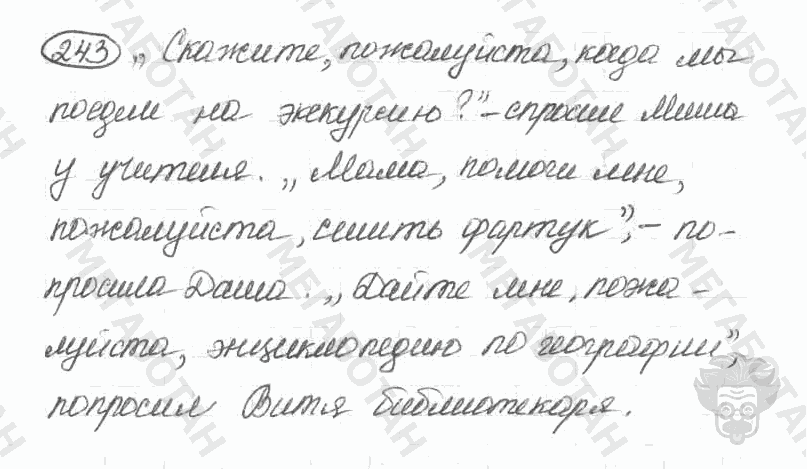 243 „Скажите, пожалуйста, когда мы
поедем на экскурсию?” – спросил Миша
у учителя. „Мама, помоги мне,
пожалуйста, сшить фартук”, – по-
просила Даша. „Дайте мне, пожа-
луйста, энциклопедию по географии”,
попросил Витя библиотекаря.
МЕГАБОТАН